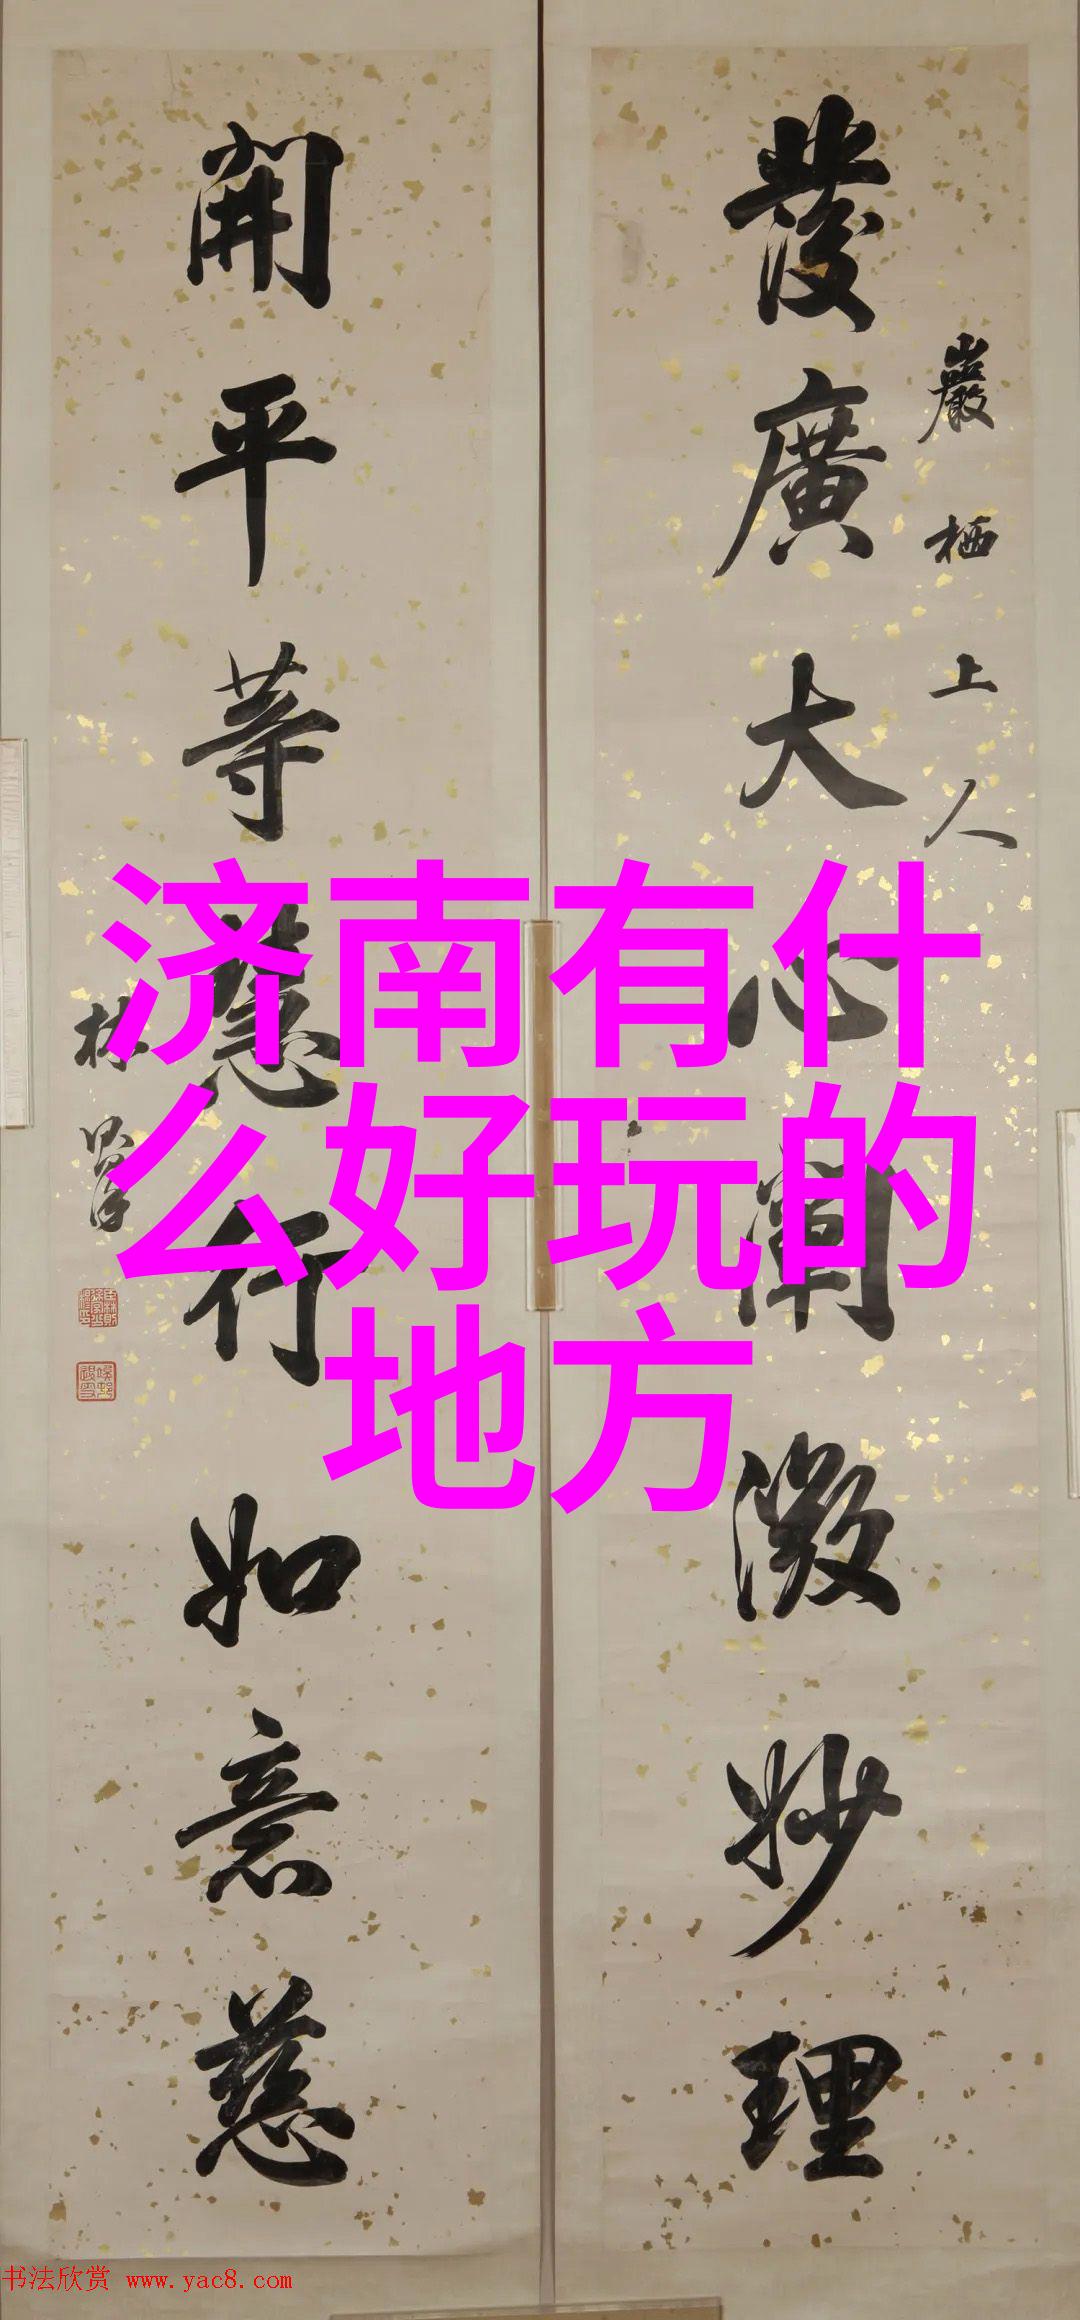 發廣大心闡微妙理
巖栖上人
開平等慧行如意慈
林
济南有什
么好玩的
地方
书法欣赏 www.yac8.com